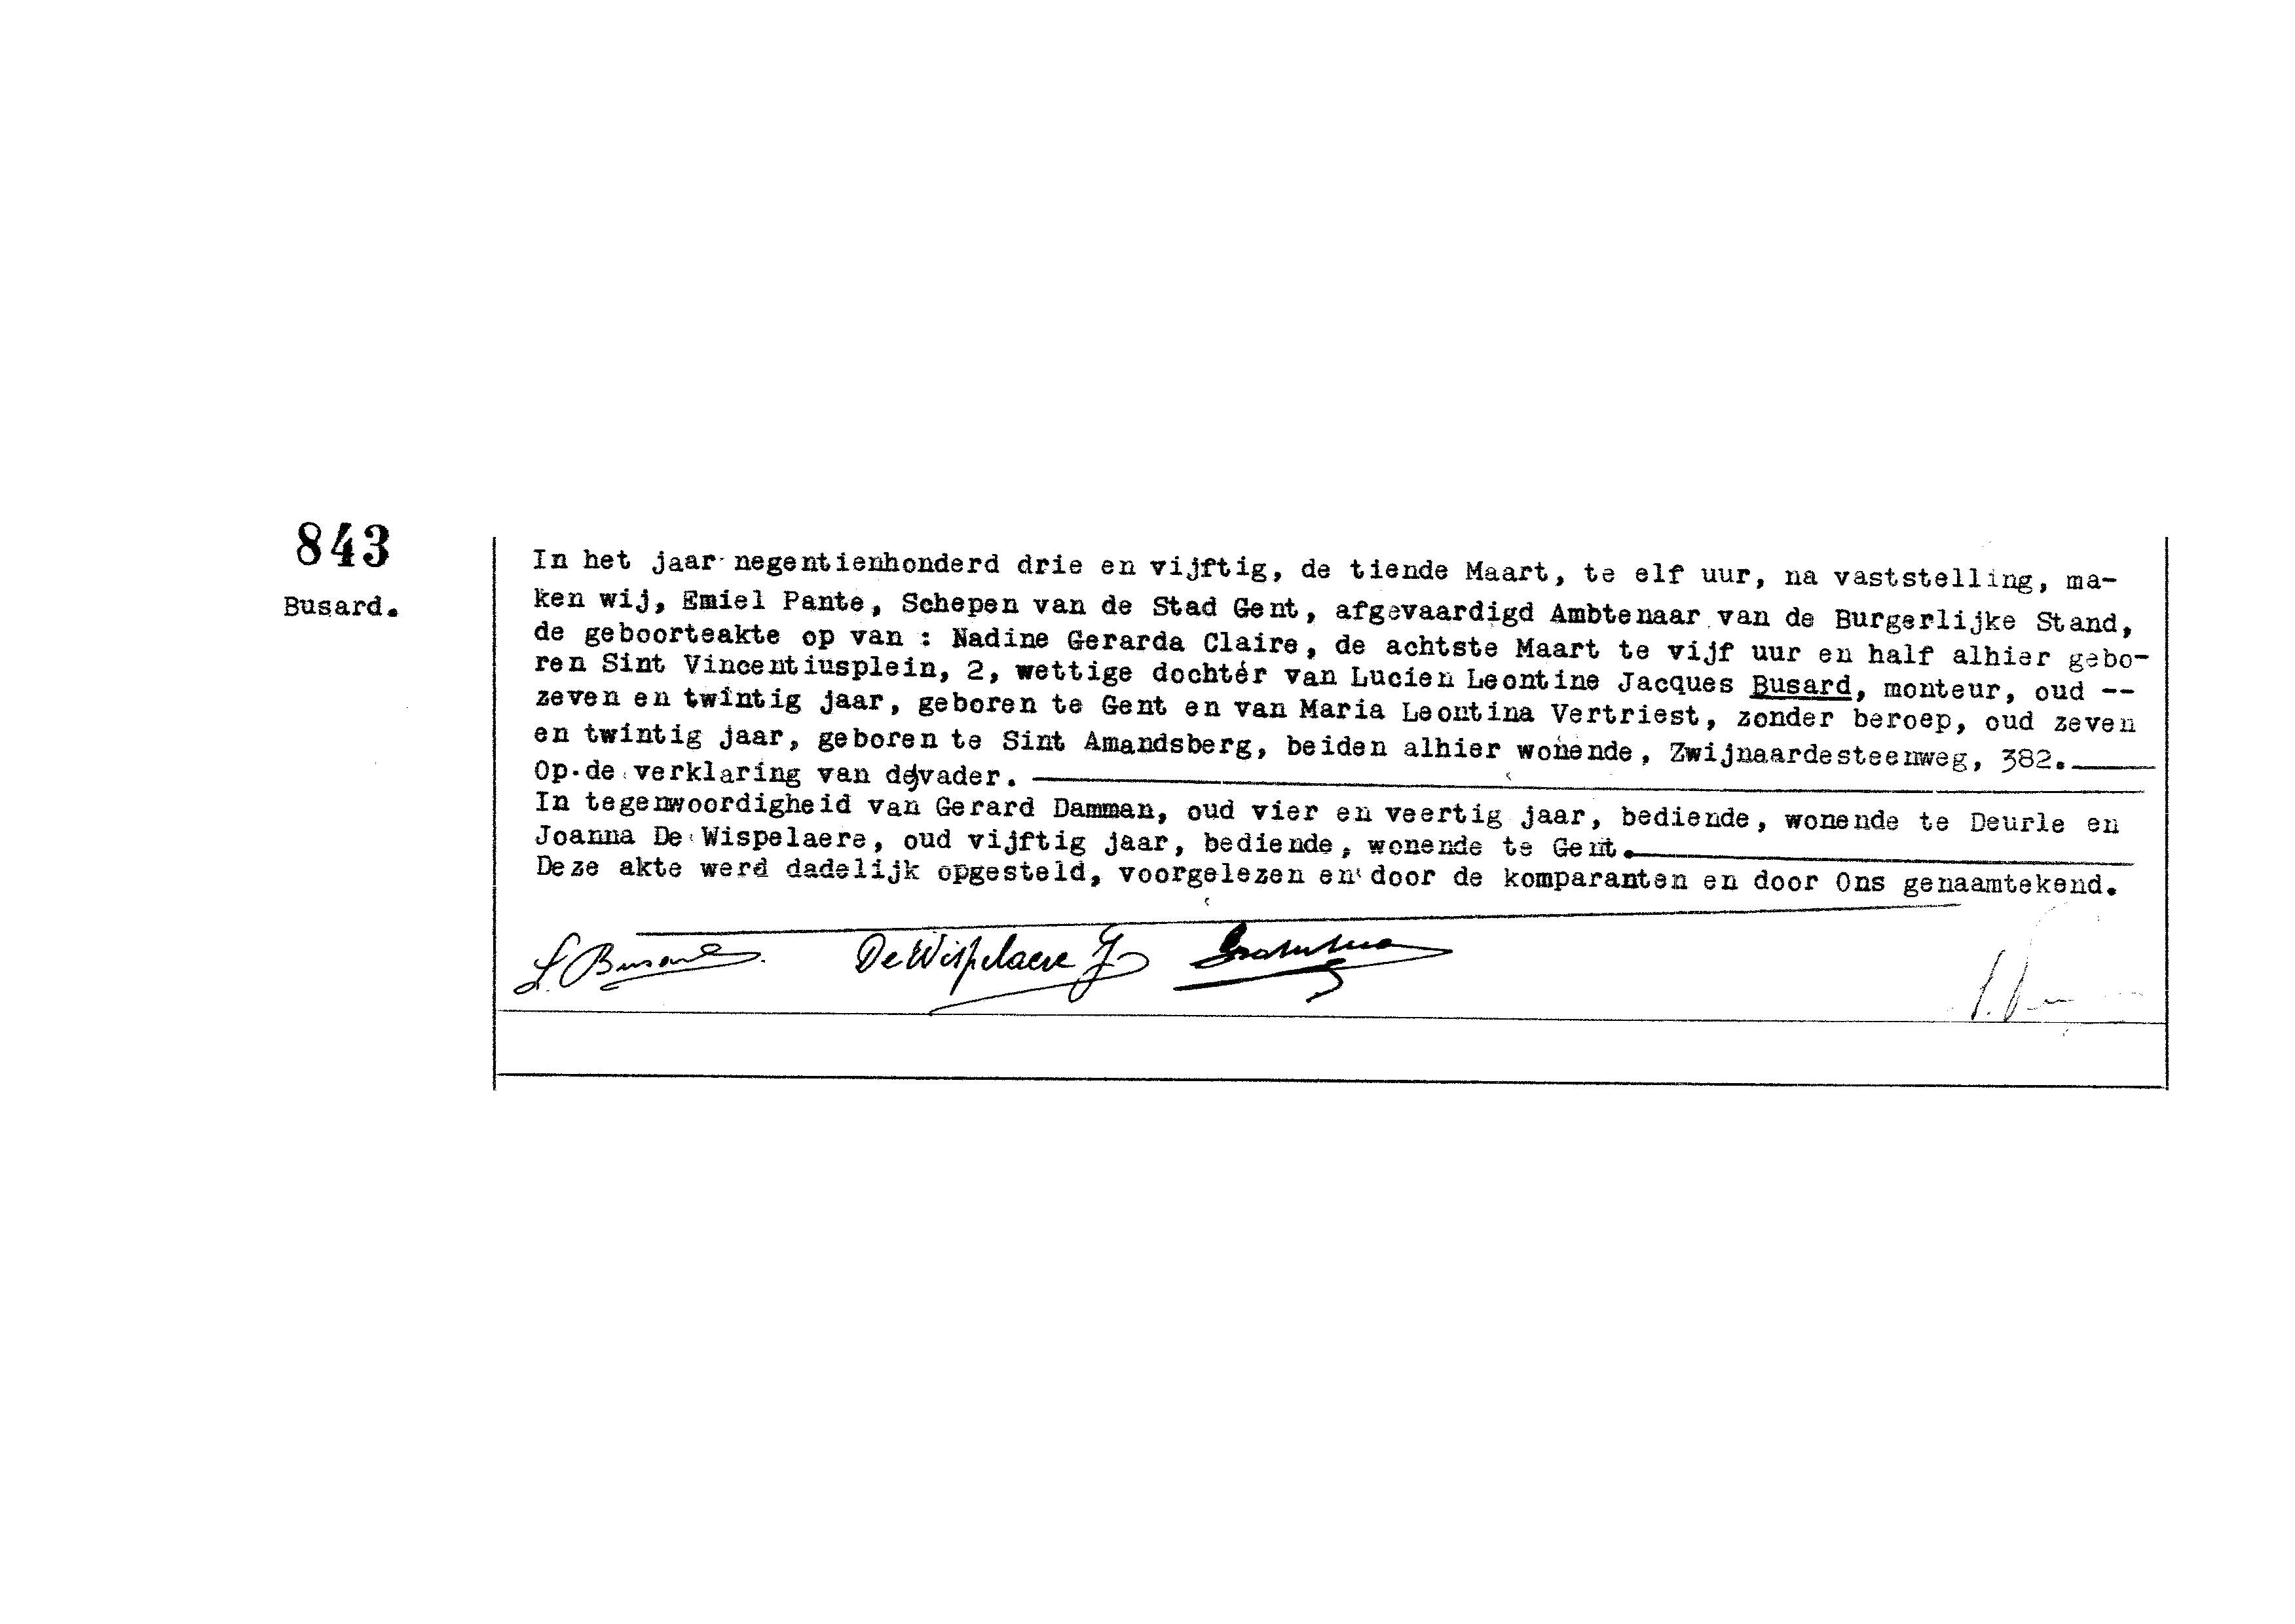 843
Busard.
In het jaar negentienhonderd drie en vijftig, de tiende Maart, te elf uur, na vaststelling, ma-
ken wij, Emiel Pante, Schepen van de Stad Gent, afgevaardigd Ambtenaar van de Burgerlijke Stand,
de geboorteakte op van : Nadine Gerarda Claire, de achtste Maart te vijf uur en half alhier gebo-
ren Sint Vincentiusplein, 2, wettige dochter van Lucien Leontine Jacques Busard, monteur, oud --
zeven en twintig jaar, geboren te Gent en van Maria Leontina Vertriest, zonder beroep, oud zeven
en twintig jaar, geboren te Sint Amandsberg, beiden alhier wonende, Zwijnaardesteenweg, 382.
Op de verklaring van de vader.
In tegenwoordigheid van Gerard Damman, oud vier en veertig jaar, bediende, wonende te Deurle en
Joanna De Wispelaere, oud vijftig jaar, bediende, wonende te Gent.
Deze akte werd dadelijk opgesteld, voorgelezen en door de komparanten en door Ons genaamtekend.
L. Busard. De Wispelaere J